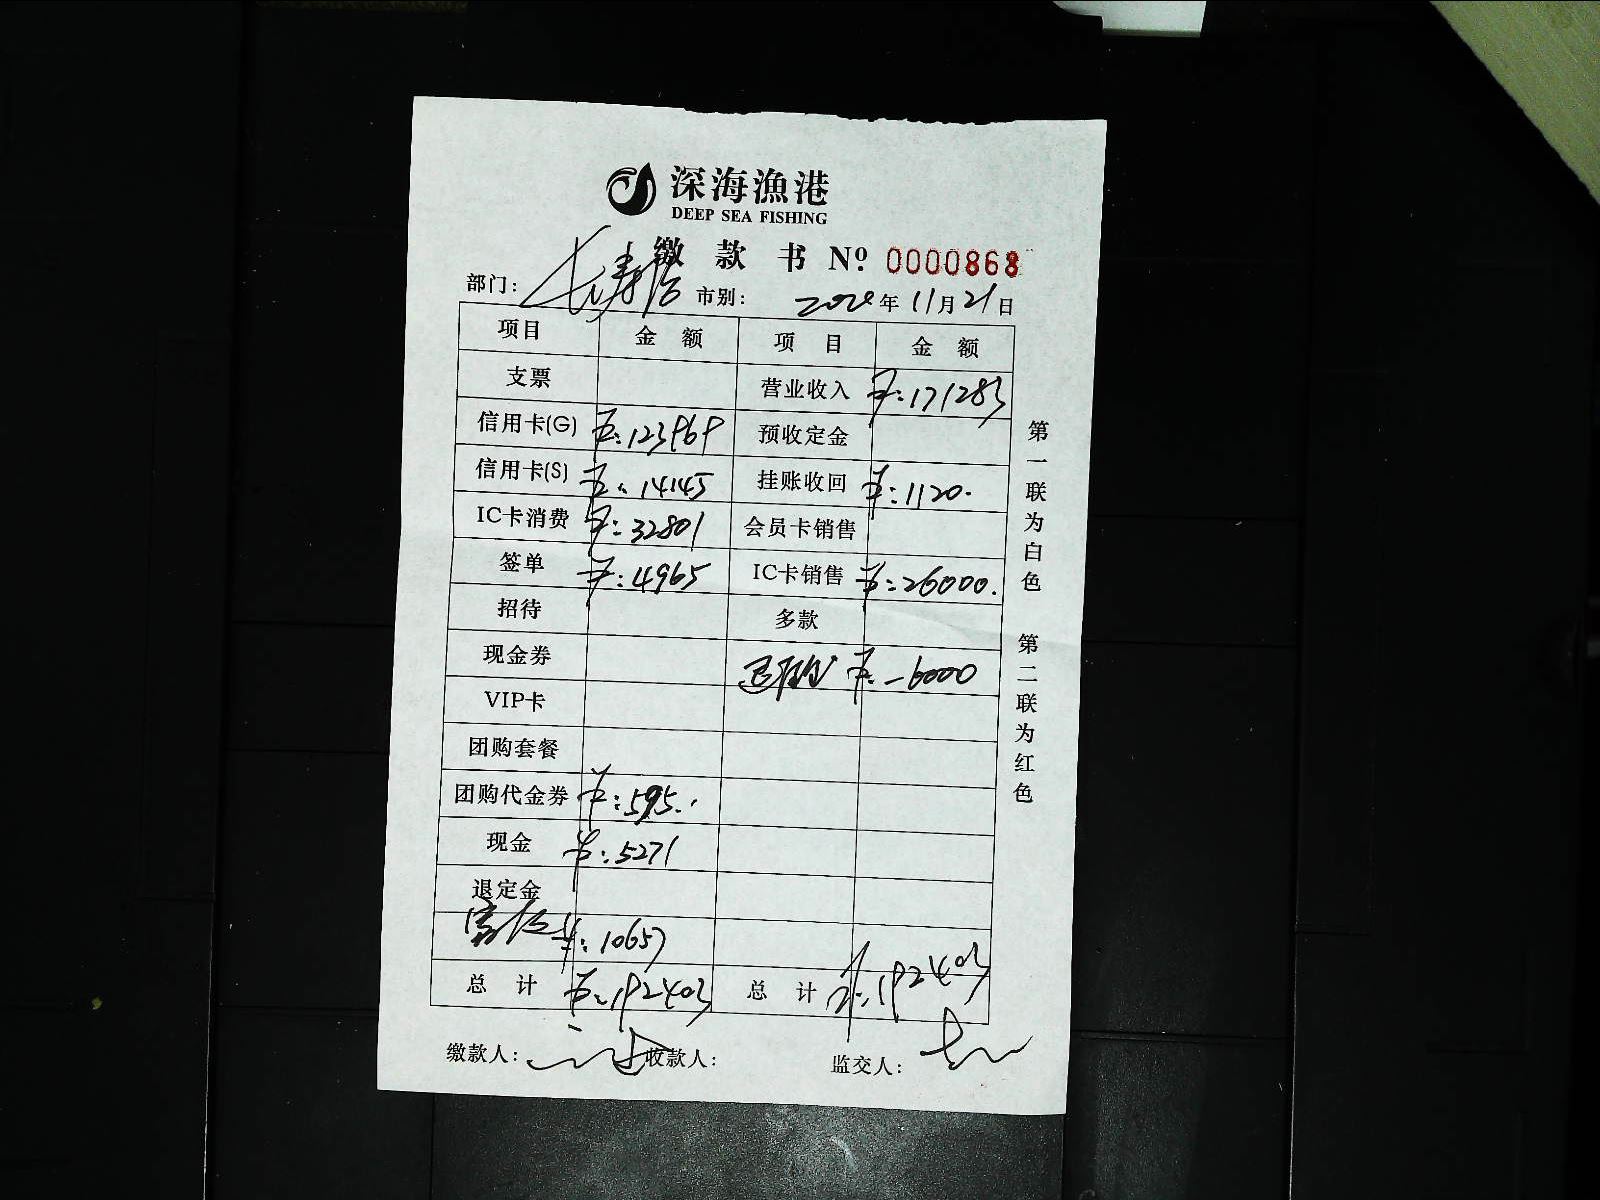 深海漁港
DEEP SEA FISHING
缴 款 书 Nº 0000868
部门: 长寿路 市别: 2020年11月21日
项目 金 额 项 目 金 额
支票 营业收入 ¥:171283
信用卡(G) ¥:123969 预收定金
信用卡(S) ¥:14145 挂账收回 ¥:1120.
IC卡消费 ¥:32801 会员卡销售
签单 ¥:4965 IC卡销售 ¥:26000.
招待 多款
现金券 ¥:-6000
VIP卡
团购套餐
团购代金券 ¥:595.
现金 ¥:5271
退定金
¥:10657
总 计 ¥:192403 总 计 ¥:192403
缴款人: 收款人: 监交人:
第一联为白色 第二联为红色